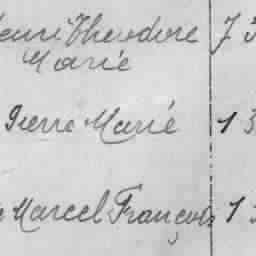 Henri Theodore 7
Marie
Pierre Marie 1 3
Marcel François 1